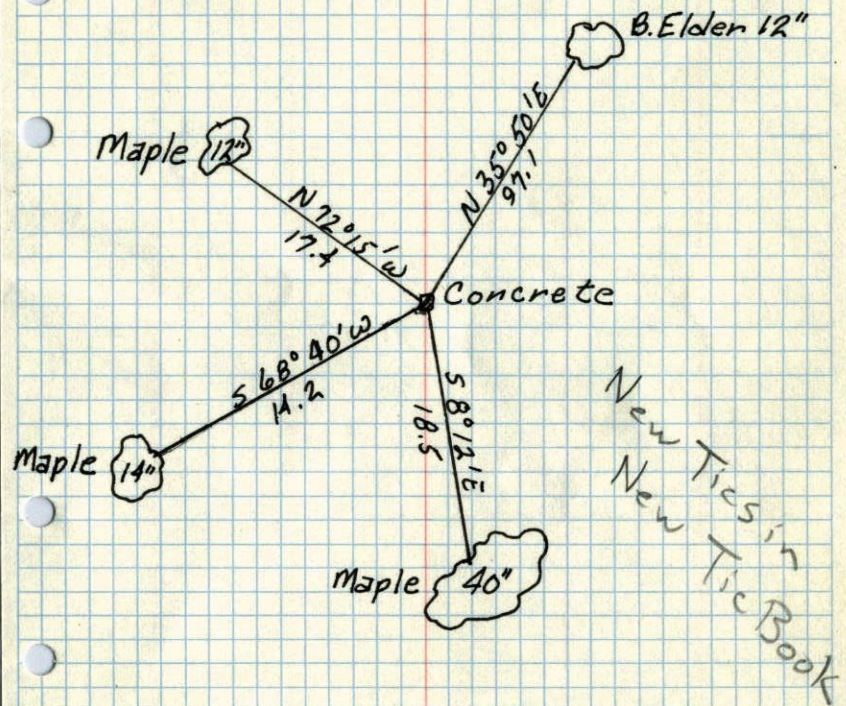 B. Elder 12"
N 35° 50' E
97.1
Maple 12"
N 72° 15' W
17.4
Concrete
S 68° 40' W
14.2
Maple 14"
S 8° 12' E
18.5
Maple 40"
New Ties in
New Tie Book